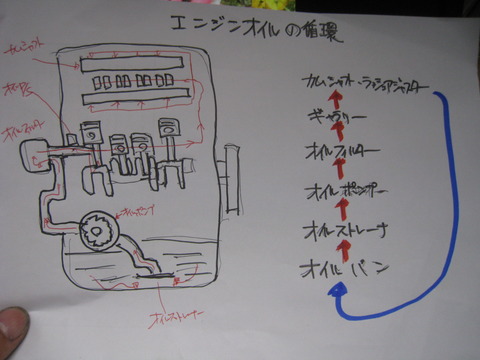 エンジンオイルの循環
カムシャフト
オイルフィルター
オイルポンプ
オイルストレーナー
カムシャフト・ラッシュアジャスター
ギャラリー
オイルフィルター
オイルポンプー
オイルストレーナ
オイルパン